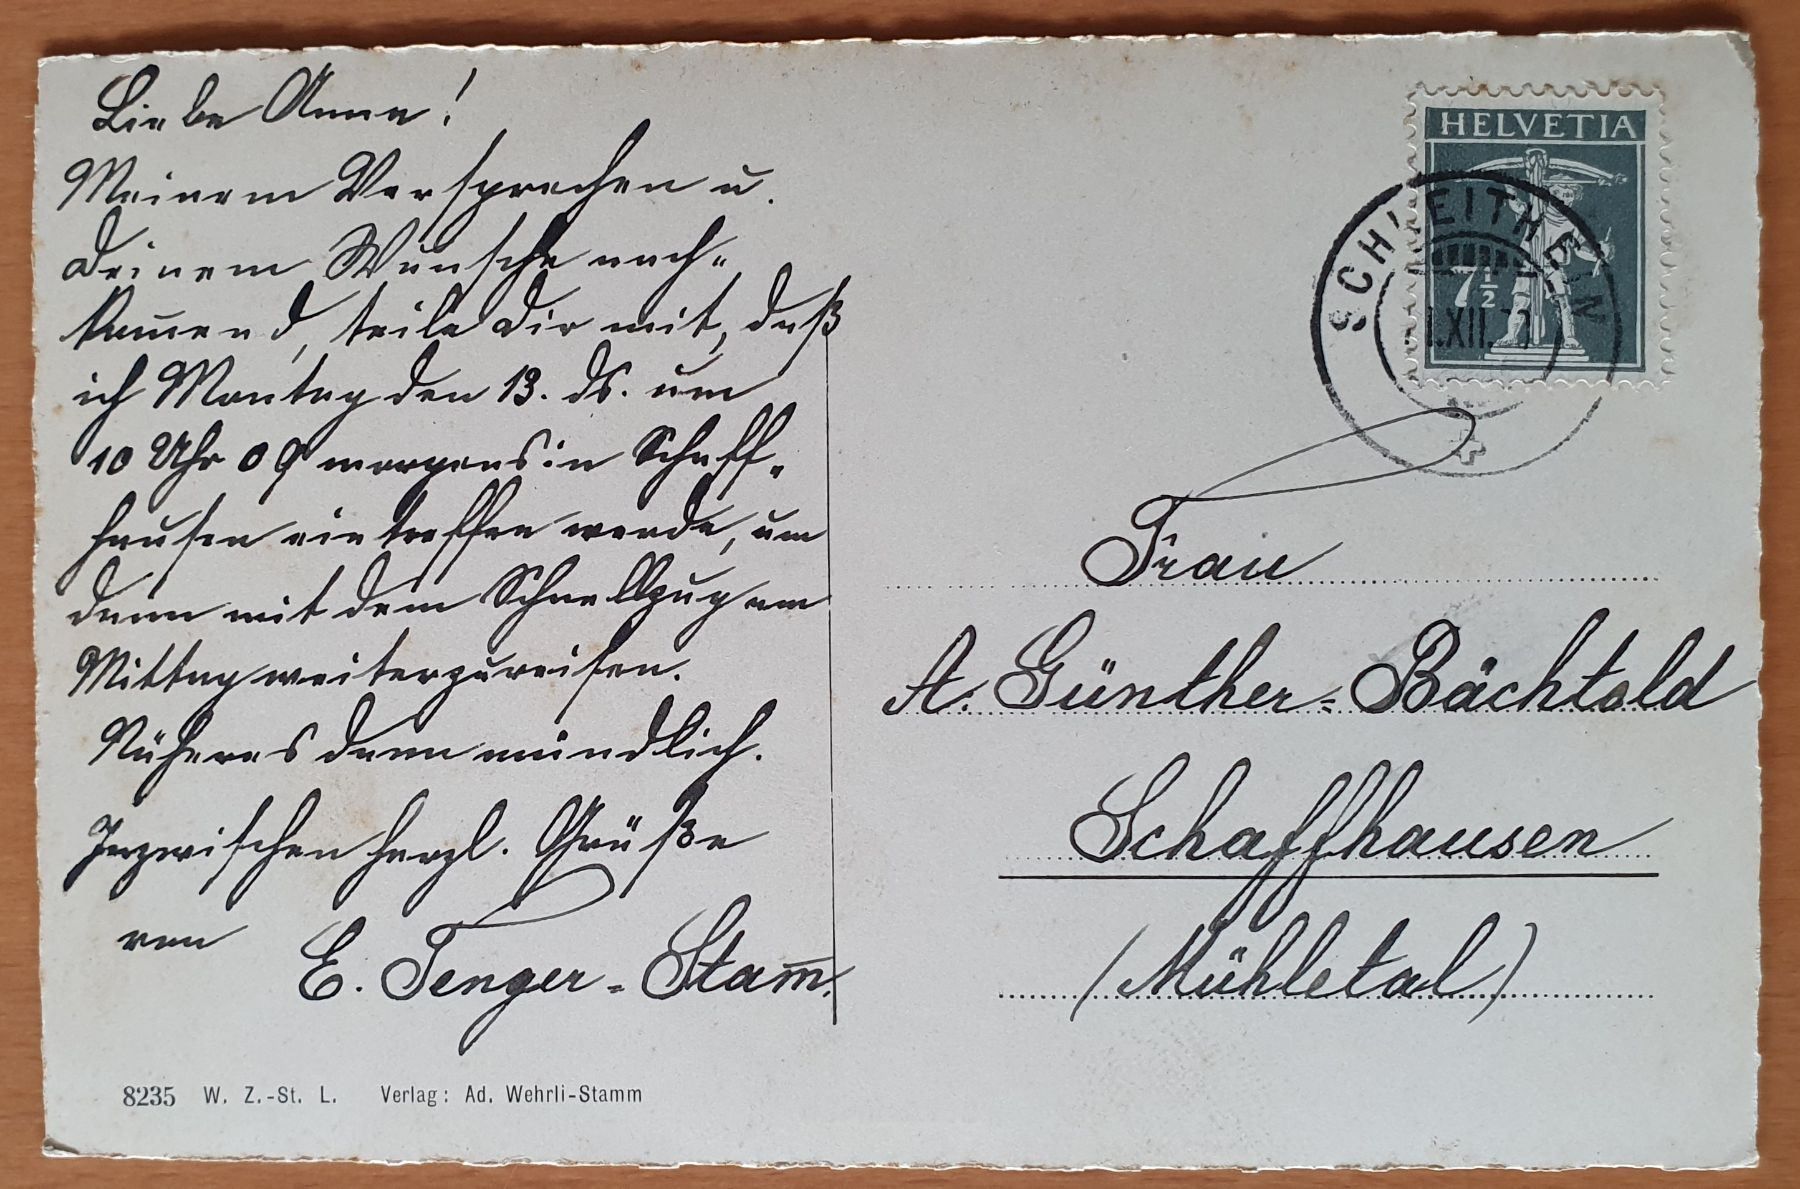 Liebe Anna!
Meinem Versprechen u.
Deinem Wunsche nach-
kom̅end, teile Dir mit, daß
ich Montag den 13. ds. um
10 Uhr 09 morgens in Schaff-
hausen eintreffen werde, um
dann mit dem Schnellzug am
Mittag weiterzureisen.
Näheres dann mündlich.
Inzwischen herzl. Grüße
von E. Tenger-Stam̅.
8235 W. Z.-St. L. Verlag: Ad. Wehrli-Stamm
HELVETIA
7½
SCHLEITHEIM
.XII.
Frau
A. Günther-Bächtold
Schaffhausen
(Mühletal)